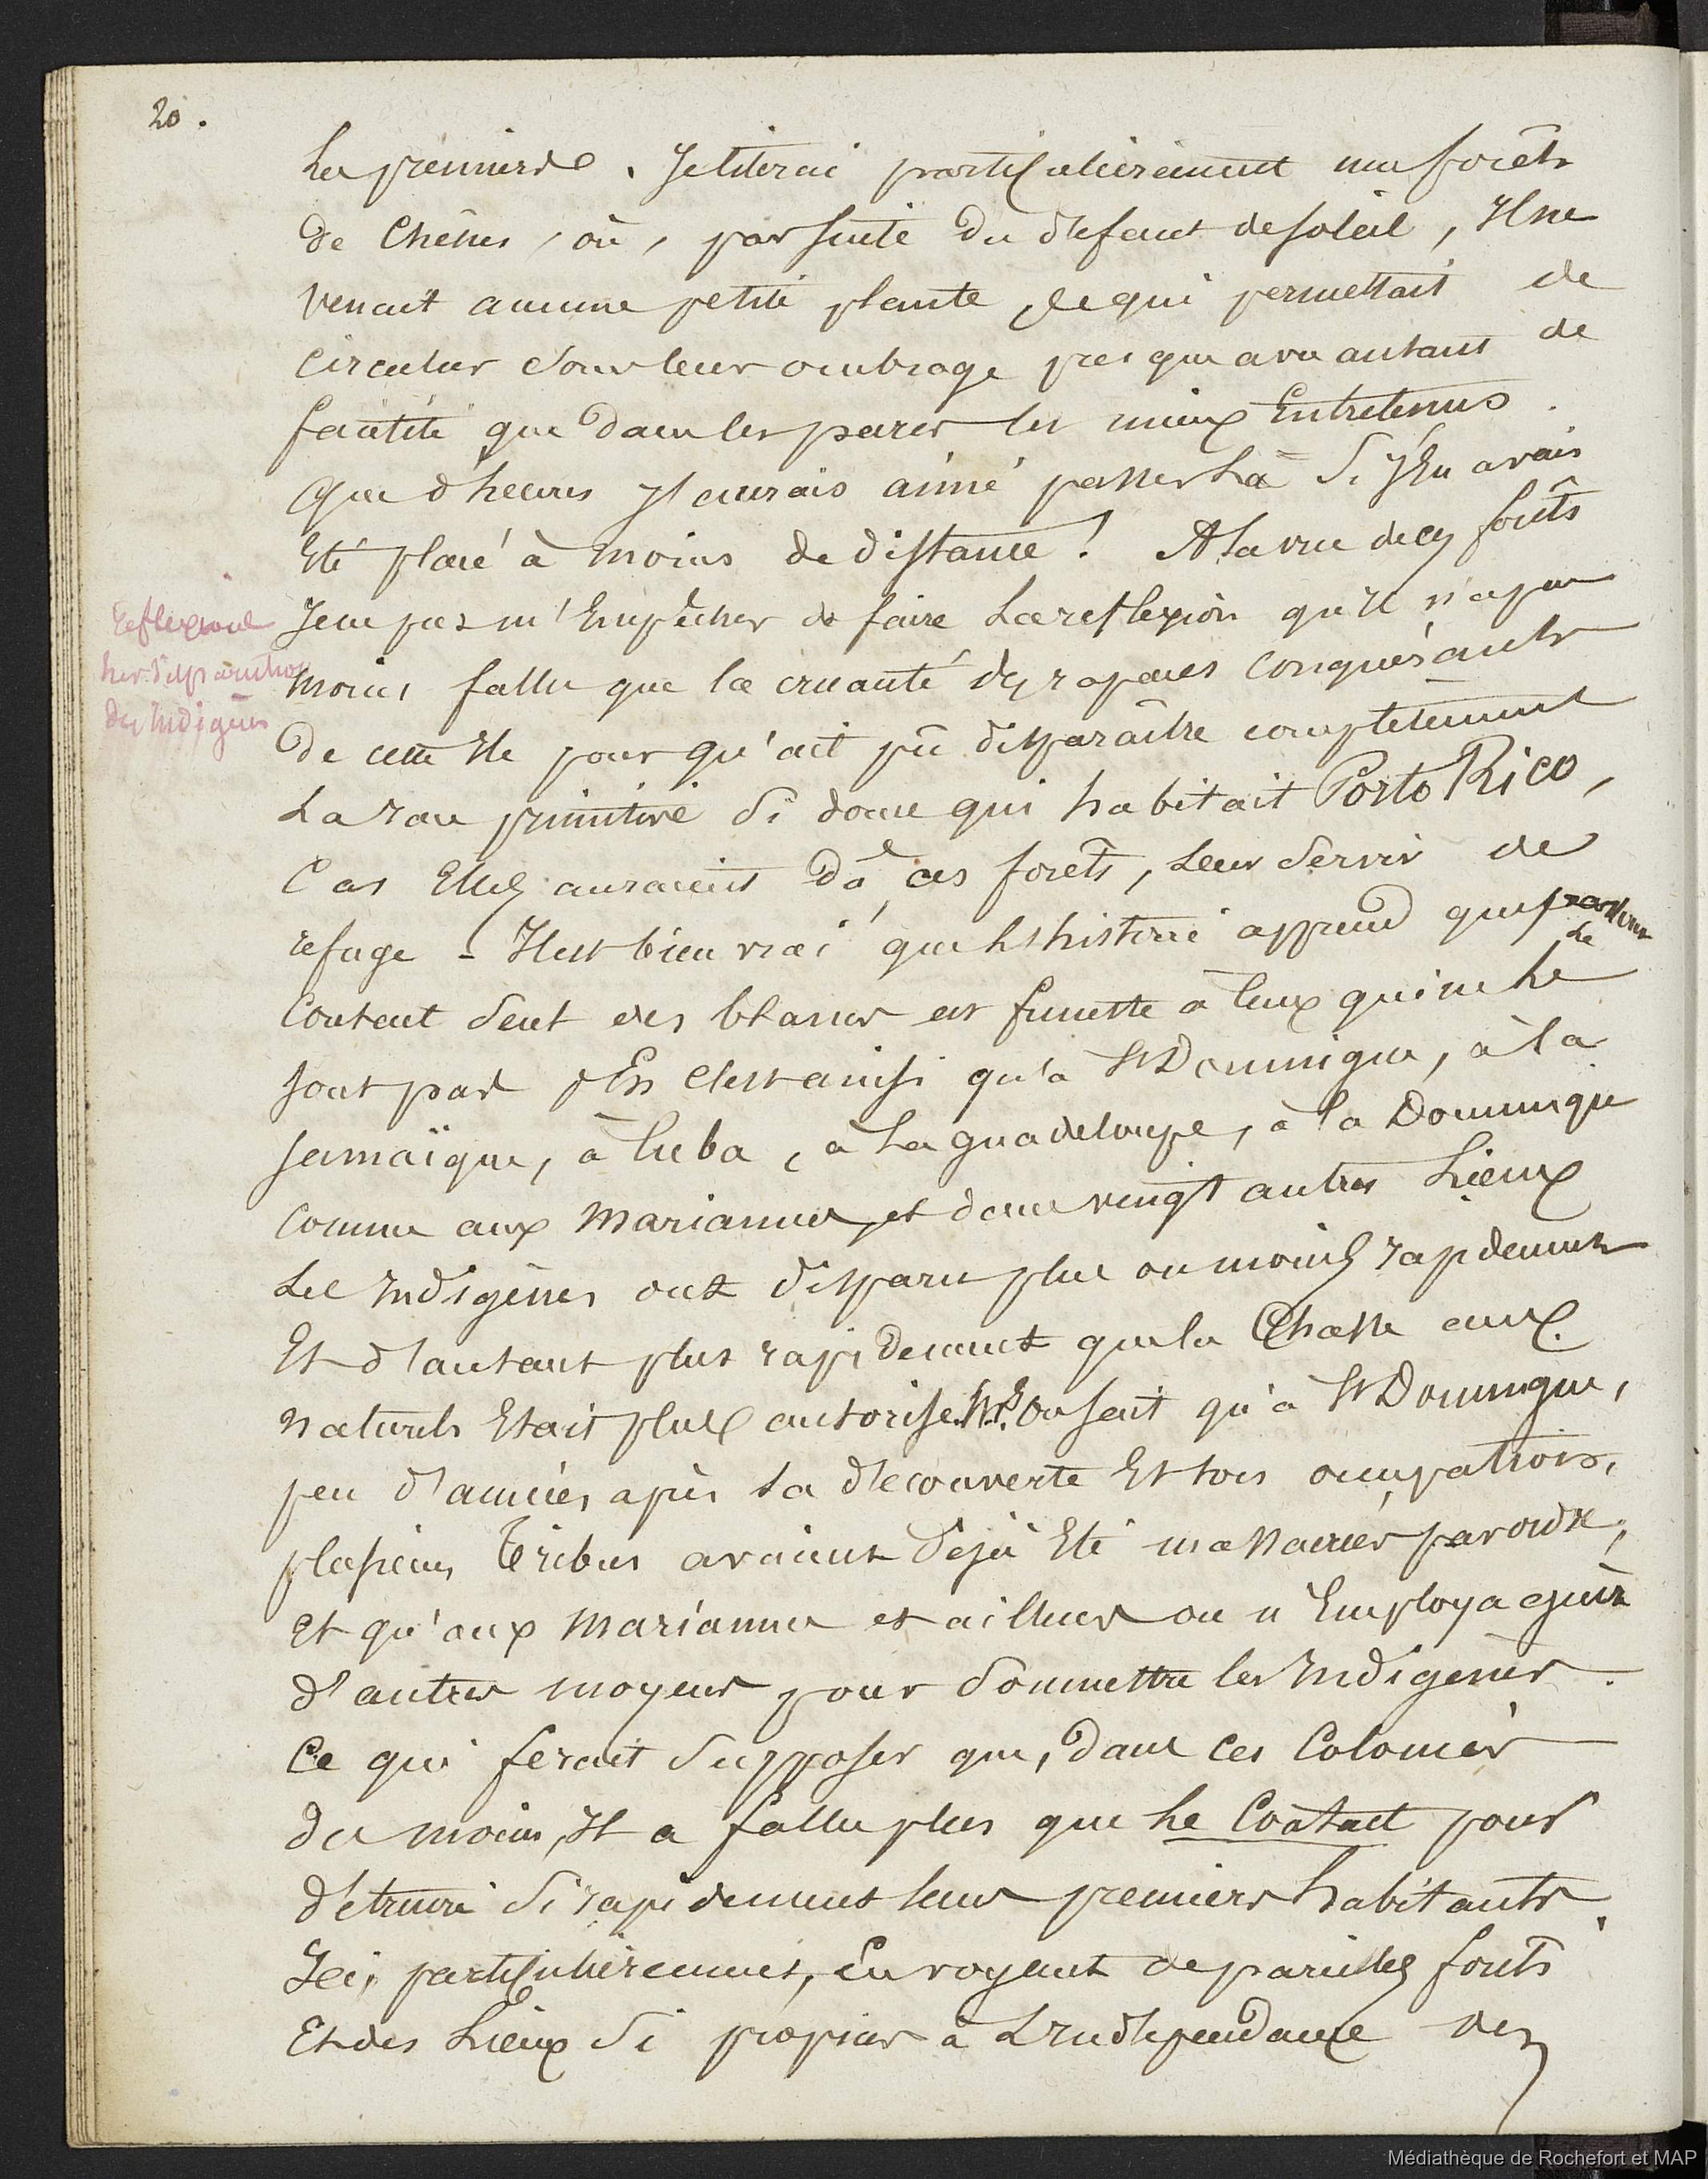 20.
La première. Je citerai particulièrement une forêts
de Chênes, où, par suite du défaut de soleil, Il ne
venait aucune petite plante, ce qui permettait de
circuler sous leur ombrage presque avec autant de
facilité que dans les parcs les mieux Entretenus.
Que d'heures j'aurais aimé passer là si j'En avais
Eté placé à moins de distance! A la vue de ces forêts
Je ne pus m'Empêcher de faire La reflexion qu'Il n'a pas
Reflexions
sur disparution
des Indigènes
moins fallu que la cruauté des rapaces conquérants
De cette Ile pour qu'ait pû disparaître completement
La race primitive si douce qui habitait Porto Rico,
Car Elles auraient dû, ces forêts, Leur servir de
refuge - Il est bien vrai que L'histoire apprend que partout
Le
Contact seul des blancs est funeste à ceux qui ne Le
sont pas. C'est ainsi qu'à St Domingue, à la
Jamaïque, à Cuba, à La guadeloupe, à la Dominique
comme aux Mariannes, et dans vingt autres Lieux
Les Indigènes ont disparu plus ou moins rapidement
Et d'autant plus rapidement que la Chasse aux
naturels Etait plus autorisé. On sait qu'à St Domingue,
peu d'années après sa découverte Et son occupation,
plusieurs Tribus avaient déjà Eté massacrées par ordre,
et qu'aux Mariannes et ailleurs on n'Employa guère
d'autres moyens pour soumettre les Indigènes.
Ce qui ferait supposer que, dans ces Colonies
du moins, Il a fallu plus que Le Contact pour
détruire si rapidement leurs premiers habitants.
Ici, particulièrement, En voyant de pareilles forêts
Et des Lieux si propices à L'Indépendance des
Médiathèque de Rochefort et MAP